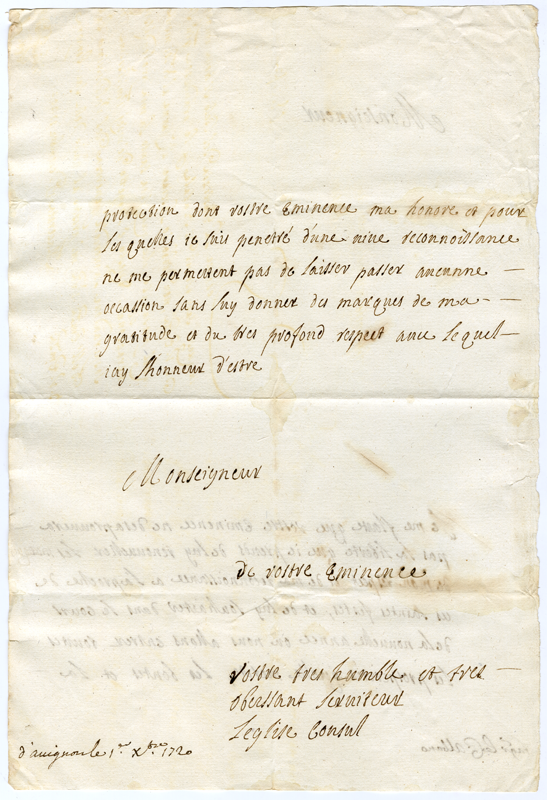 protection dont vostre Eminence ma honoré et pour
les quelles ie suis penetré d'une viue reconnoissance
ne me permettent pas de laisser passer aucunne —
occassion sans luy donner des marques de ma —
gratitude et du tres profond respect auec lequel
iay l'honneur d'estre
Monseigneur
de vostre Eminence
Vostre tres humble et tres —
Obeissant seruiteur
Leglise Consul
d'auignon le 1er Xbre 1720